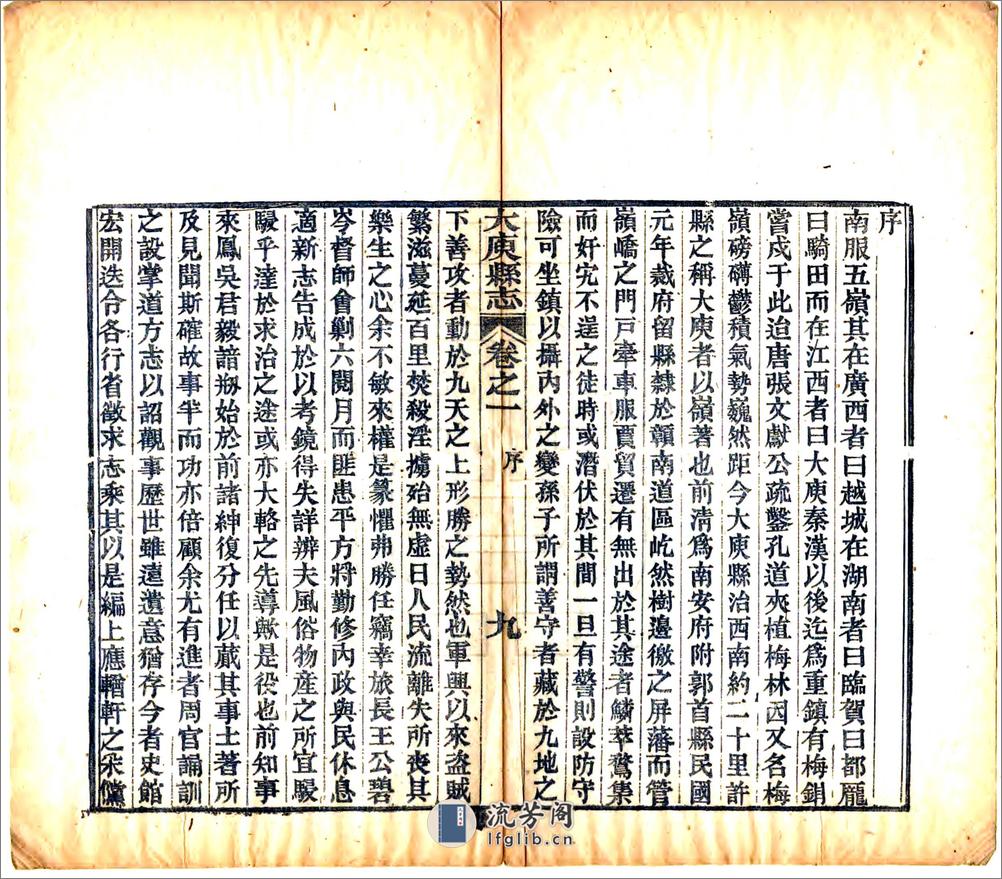 序
南服五嶺其在廣西者曰越城在湖南者曰臨賀曰都龐
曰騎田而在江西者曰大庾秦漢以後迄爲重鎮有梅鋗
嘗戍于此迨唐張文獻公疏鑿孔道夾植梅林因又名梅
嶺磅礴鬱積氣勢巍然距今大庾縣治西南約二十里許
縣之稱大庾者以嶺著也前清爲南安府附郭首縣民國
元年裁府留縣隸於贛南道區屹然樹邊徼之屏藩而管
嶺嶠之門戸牽車服賈貿遷有無出於其途者鱗萃鶩集
而奸宄不逞之徒時或潛伏於其間一旦有警則設防守
險可坐鎮以攝內外之變孫子所謂善守者藏於九地之
大庾縣志
卷之一
序
九
下善攻者動於九天之上形勝之勢然也軍興以來盗賊
繁滋蔓延百里焚殺淫擄殆無虛日人民流離失所喪其
樂生之心余不敏來權是篆懼弗勝任竊幸旅長王公碧
岑督師會剿六閱月而匪患平方將勤修內政與民休息
適新志告成於以考鏡得失詳辨夫風俗物産之所宜駸
駸乎達於求治之途或亦大輅之先導歟是役也前知事
來鳳吳君毅諳剏始於前諸紳復分任以蕆其事士著所
及見聞斯確故事半而功亦倍顧余尤有進者周官誦訓
之設掌道方志以詔觀事歷世雖遠遺意猶存今者史館
宏開迭令各行省徵求志乘其以是編上應輶軒之采儻
流芳阁
lfglib.cn